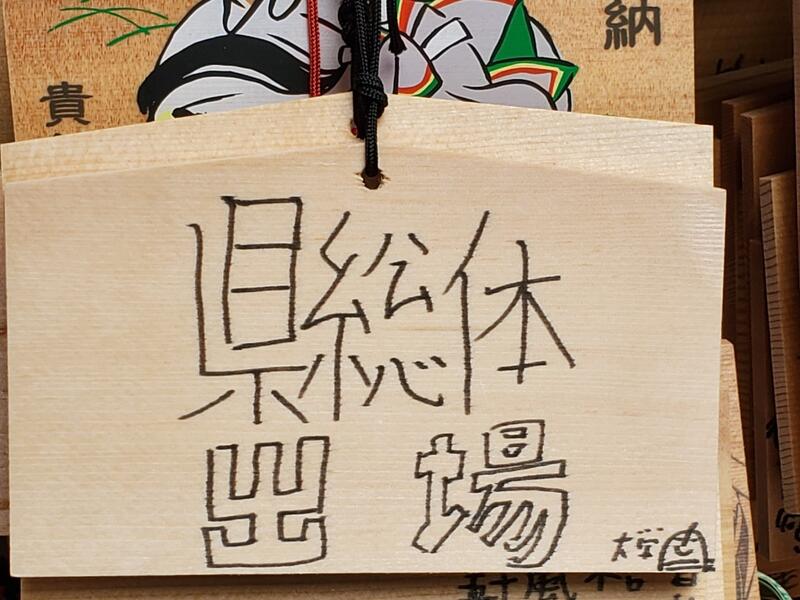 納
貴
県総体
出場